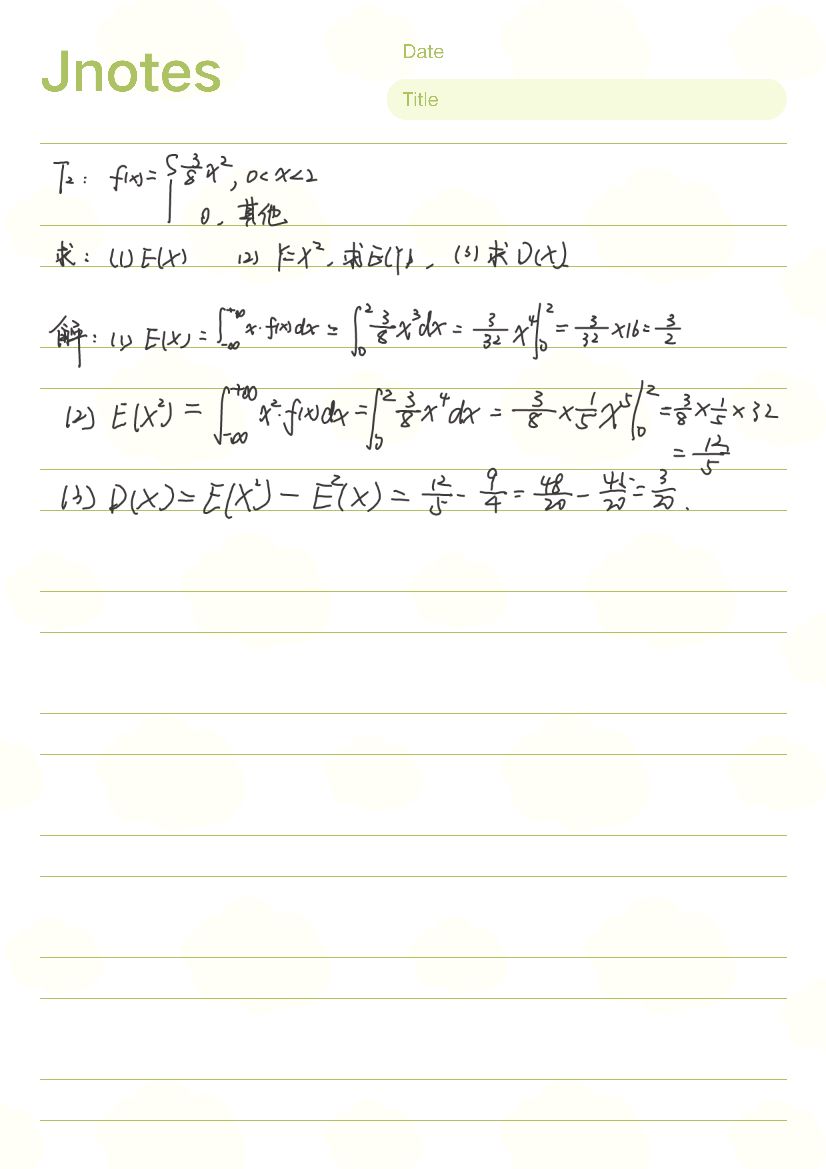 Jnotes
Date
Title
T2: f(x)={3/8 x², 0<x<2
0, 其他
求: (1) E(X) (2) Y=X², 求E(Y), (3) 求 D(X)
解: (1) E(X) = ∫_{-∞}^{+∞} x·f(x)dx = ∫_0^2 3/8 x³dx = 3/32 x⁴|_0^2 = 3/32 ×16 = 3/2
(2) E(X²) = ∫_{-∞}^{+∞} x²·f(x)dx = ∫_0^2 3/8 x⁴dx = 3/8 × 1/5 x⁵|_0^2 = 3/8 × 1/5 × 32
= 12/5
(3) D(X) = E(X²) - E²(X) = 12/5 - 9/4 = 48/20 - 45/20 = 3/20.